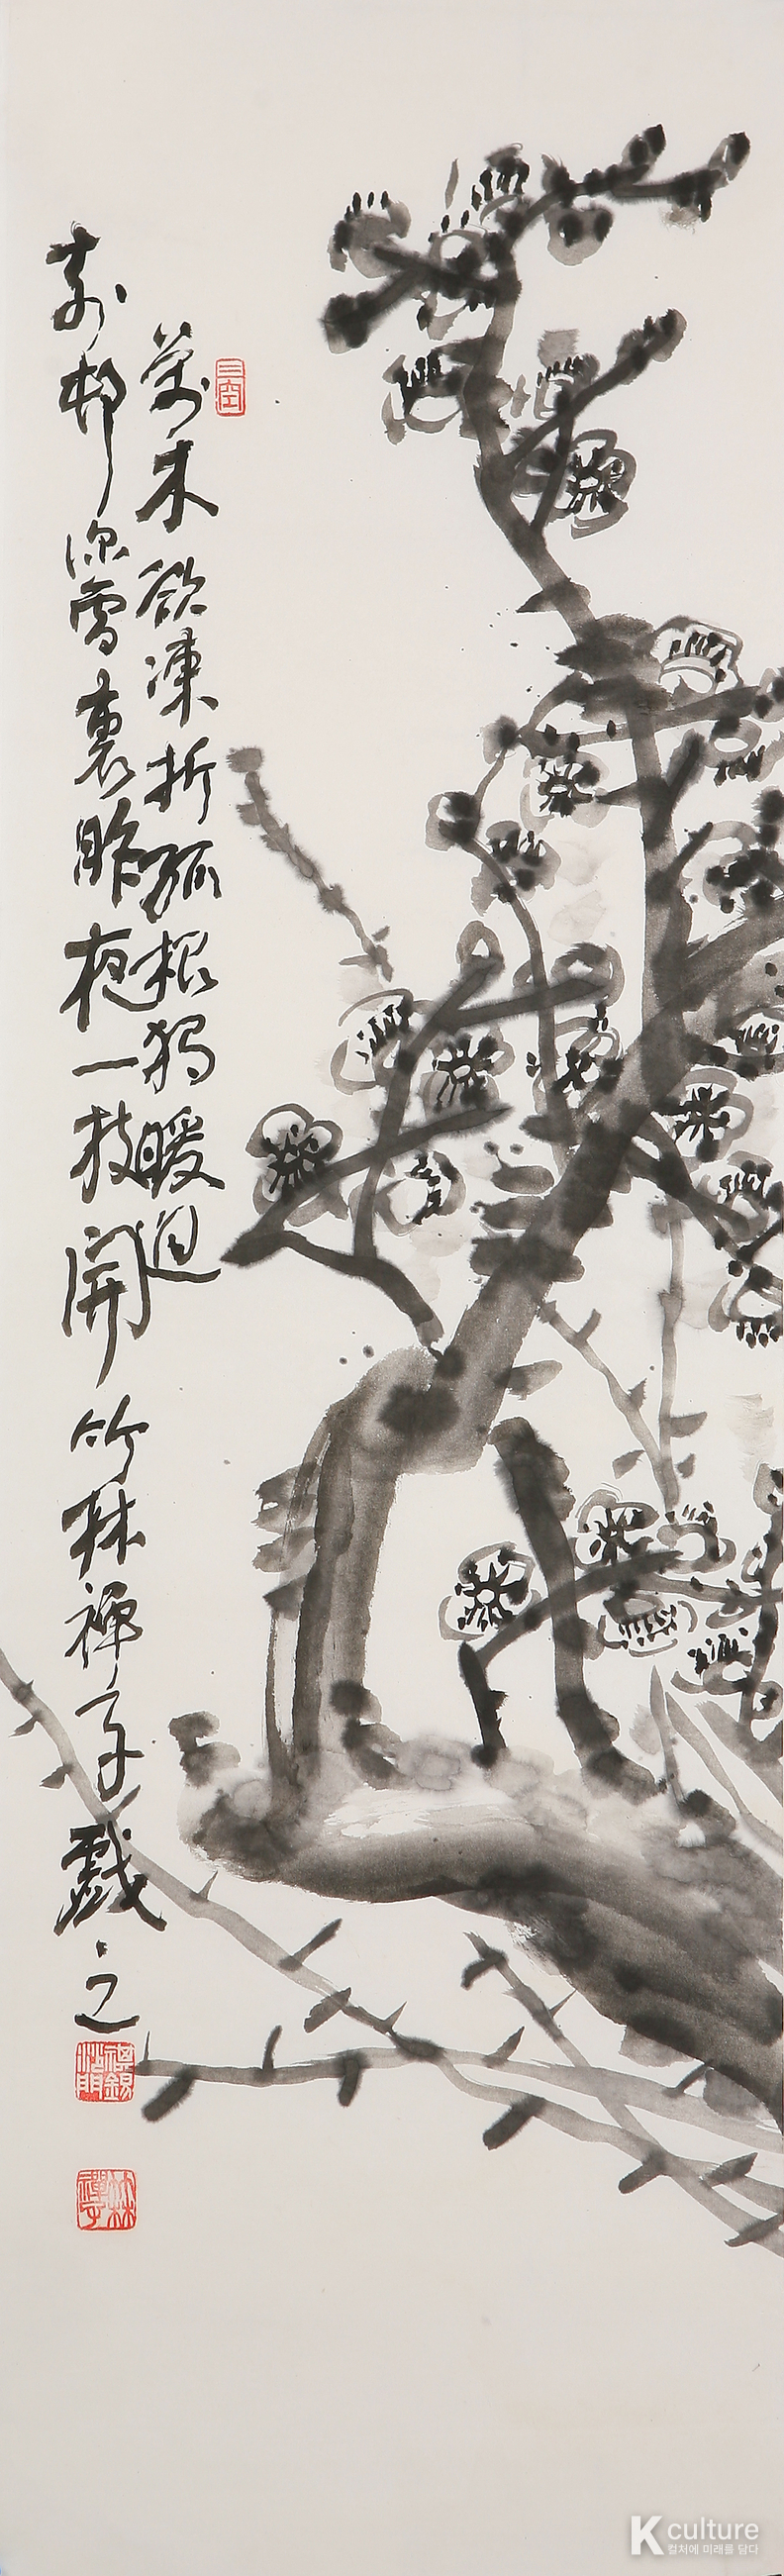 三空
萬木欲凍折孤根獨暖迴
前邨深雪裏昨夜一枝開 竹林禪子戲之
竹林禪子
K culture
컬처에 미래를 담다